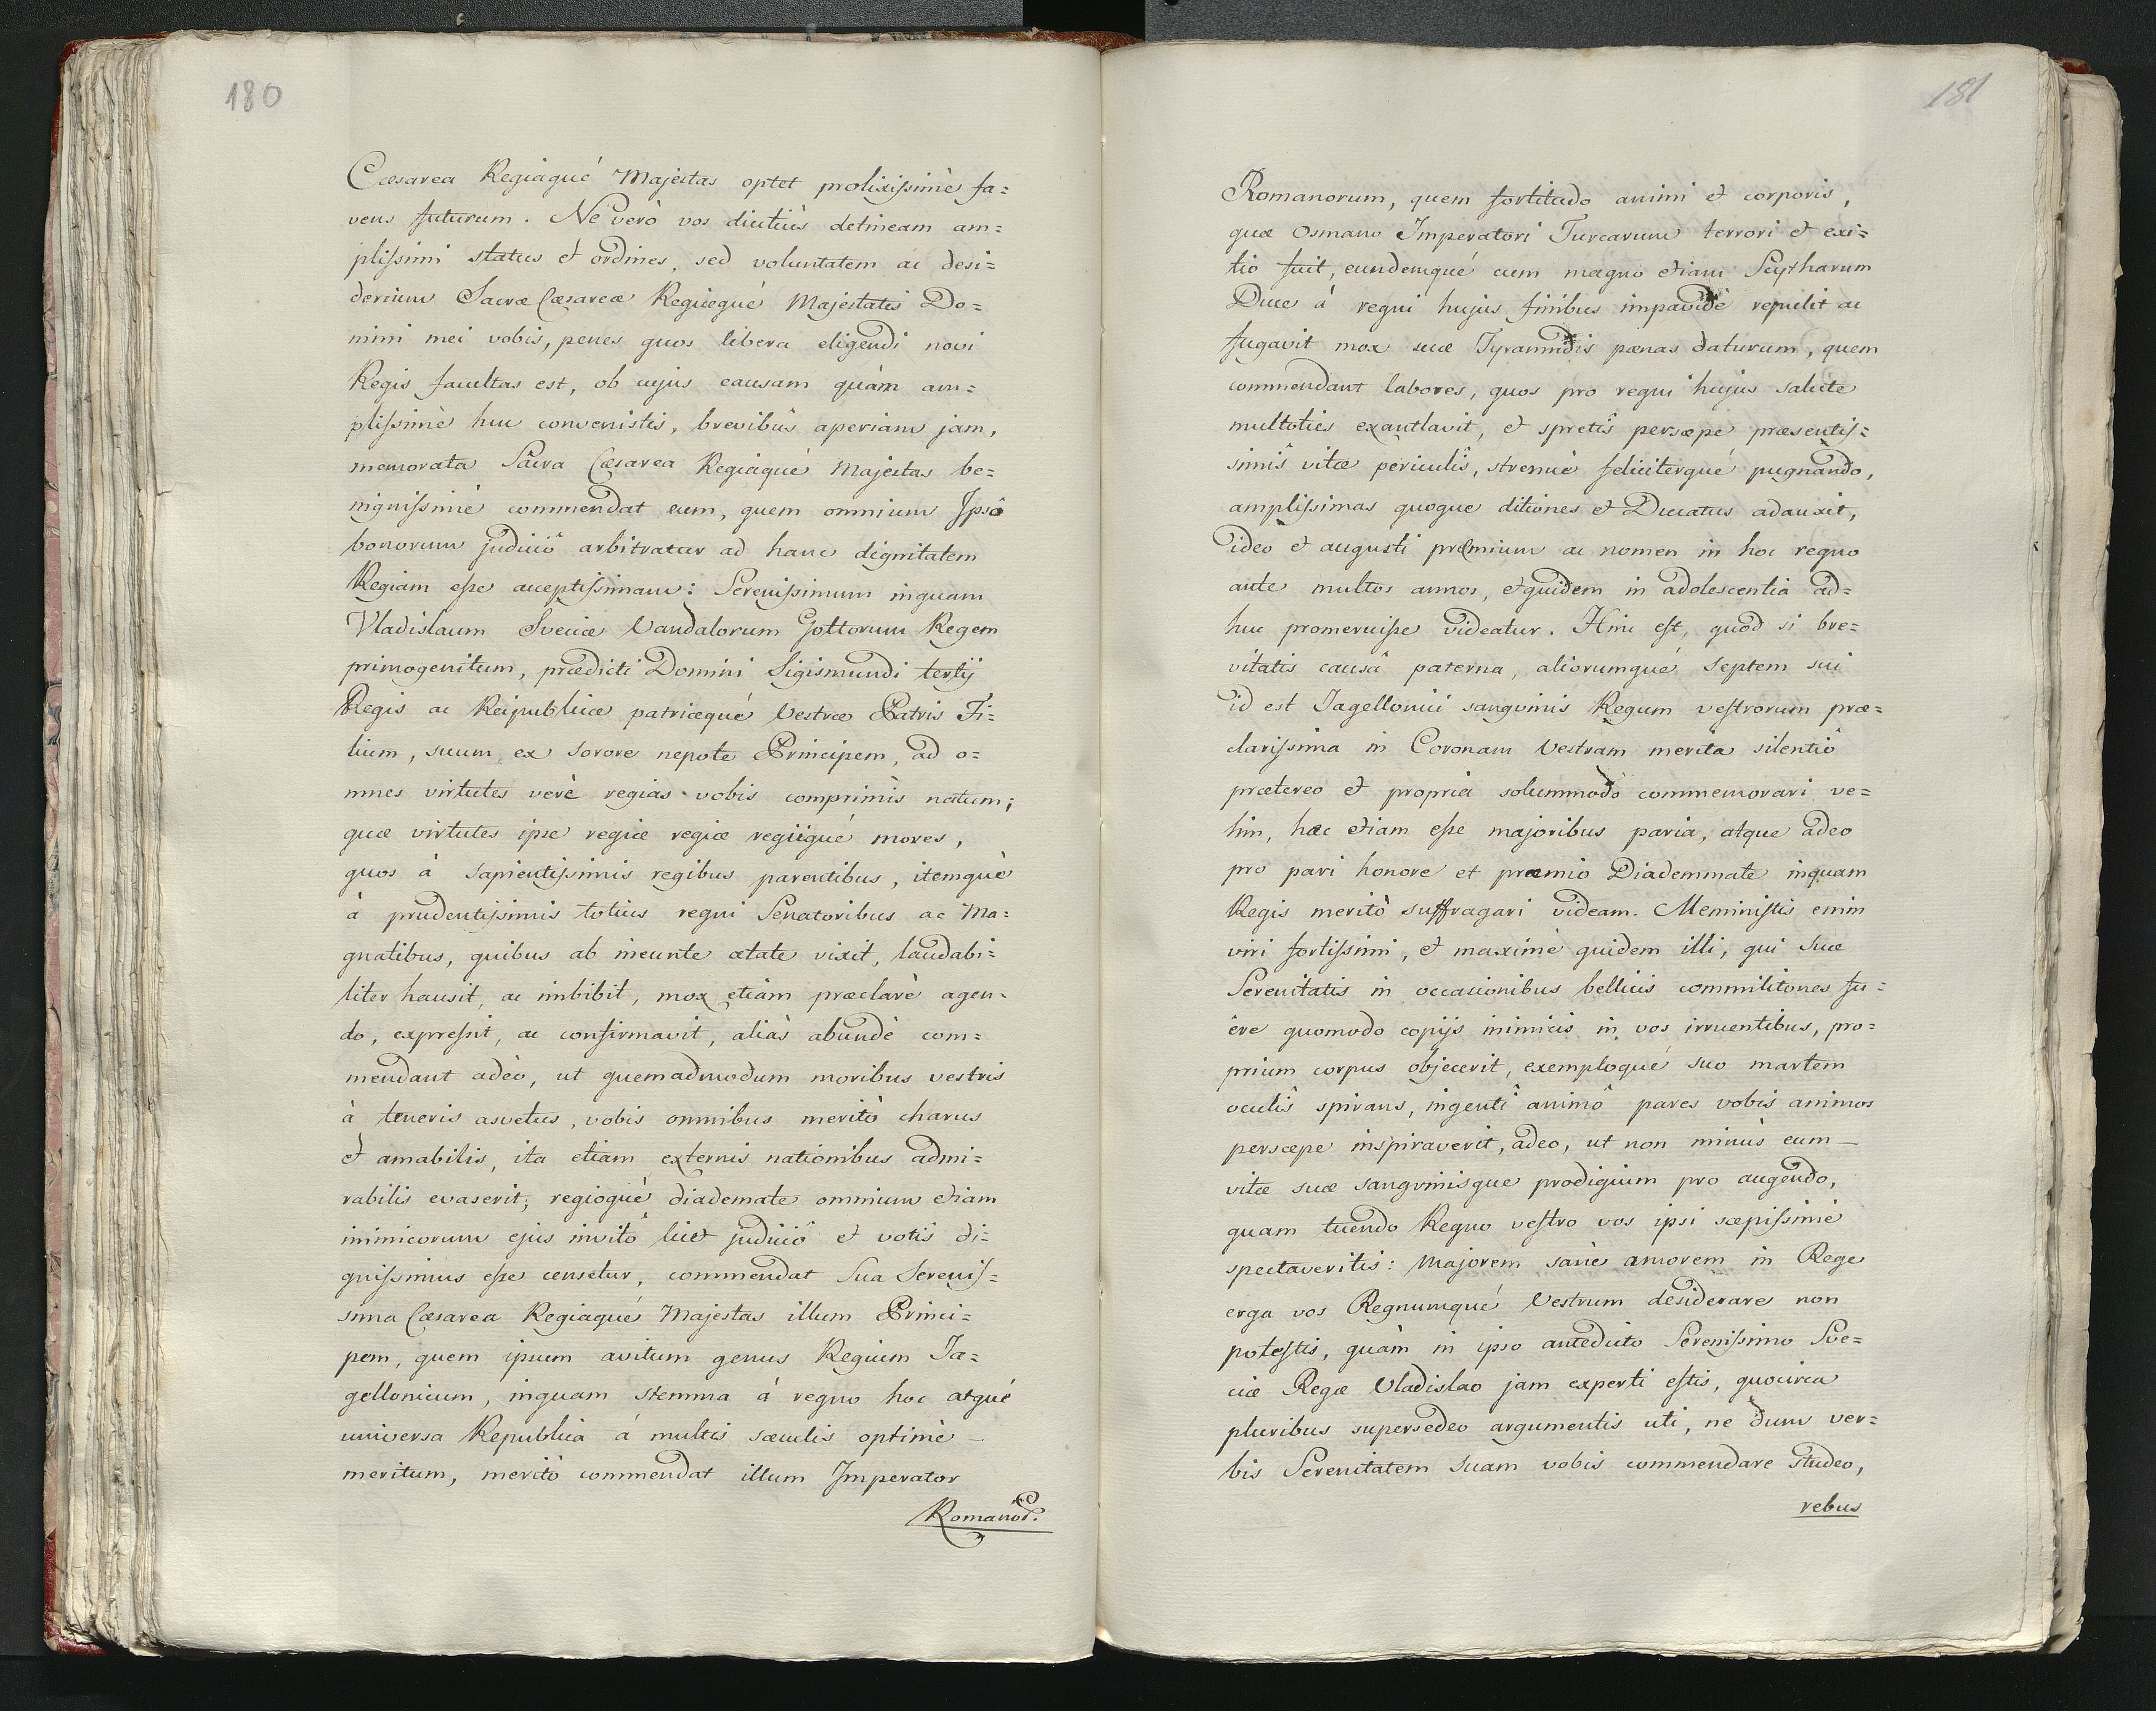 180
Cæsarea Regiaqué Majestas optet prolixissimè fa=
vens futurum. Ne verò vos diutiùs detineam am=
plissimi status et ordines, sed voluntatem ac desi=
derium Sacræ Cæsareæ Regiæqué Majestatis Do=
mini mei vobis, penes quos libera eligendi novi
Regis facultas est, ob cujus causam quàm am=
plissimè huc convenistis, brevibûs aperiam jam,
memorata Sacra Cæsarea Regiaqué Majestas be=
nignissimè commendat eum, quem omnium Ipsô
bonorum judiciô arbitratur ad hanc dignitatem
Regiam esse acceptissimam: Serenissimum inquam
Vladislaum Sveciæ Vandalorum Gottorum Regem
primogenitum, prædicti Domini Sigismundi tertij
Regis ac Reipublicæ patriæqué Vestræ Patris Fi=
lium, suum ex sorore nepote Principem, ad o=
mnes virtutes verè regias vobis comprimis natum;
quæ virtutes ipse regiæ regiæ regiiqué mores,
quos à sapientissimis regibus parentibus, itemqué
à prudentissimis totius regni Senatoribus ac Ma=
gnatibus, quibus ab ineunte ætate vixit, laudabi=
liter hausit, ac imbibit, mox etiàm præclarè agen=
do, expressit, ac confirmavit, aliàs abundè com=
mendant adèo, ut quemadmodum moribus vestris
à teneris asvetus, vobis omnibus meritò charus
et amabilis, ita etiam externis nationibus admi=
rabilis evaserit, regioqué diademate omnium etiam
inimicorum ejus invitô licet judiciô et votis di=
gnissimus esse censetur, commendat Sua Serenis=
sima Cæsarea Regiaqué Majestas illum Princi=
pem, quem ipsum avitum genus Regium Ja=
gellonicum, inquam stemma à regno hoc atqué
universa Republica à multis sæculis optimè
meritum, meritò commendat illum Imperator
Romanor.
181
Romanorum, quem fortitudo animi et corporis,
quæ Osmano Imperatori Turcarum terrori et exi=
tio fuit, eundemqué cum magno etiam Scytharum
Duce à regni hujus finibus impavidè repulit ac
fugavit mox suæ Tyrannidis pænas daturum, quem
commendant labores, quos pro regni hujus salute
multoties exantlavit, et spretîs persæpe præsentis=
simîs vitæ periculîs, strenuè feliciterqué pugnando,
amplissimas quoque ditiones et Ducatus adauxit,
ideo et augusti præmium ac nomen in hoc regno
ante multos annos, equidem in adolescentia ad=
huc promeruisse videatur. Hinc est, quod si bre=
vitatis causâ paterna, aliorumqué septem sui
id est Jagellonici sangvinis Regum vestrorum præ=
clarissima in Coronam Vestram merita silentiô
prætereo et propria solummodò commemorari ve=
lim, hæc etiam esse majoribus paria, atque adeo
pro pari honore et præmio Diademmate inquam
Regis meritò suffragari videam. Meministis enim
viri fortissimi, et maximè quidem illi, qui Suæ
Serenitatis in occasionibus bellicis commilitones fu=
êre quomodo copijs inimicis in vos irruentibus, pro=
prium corpus objecerit, exemploqué suo martem
oculîs spirans, ingentî animô pares vobis animos
persæpe inspiraverit, adeo, ut non minùs eum
vitæ suæ sangvinisque prodigium pro augendo,
quam tuendo Regno vestro vos ipsi sæpissimè
spectaveritis: Majorem sanè amorem in Rege
erga vos Regnumqué Vestrum desiderare non
potestis, quàm in ipso antedicto Serenissimo Sve=
ciæ Regæ Vladislao jam experti estis, quocirca
pluribus supersedeo argumentis uti, ne dum ver=
bis Serenitatem Suam vobis commendare studeo,
rebus